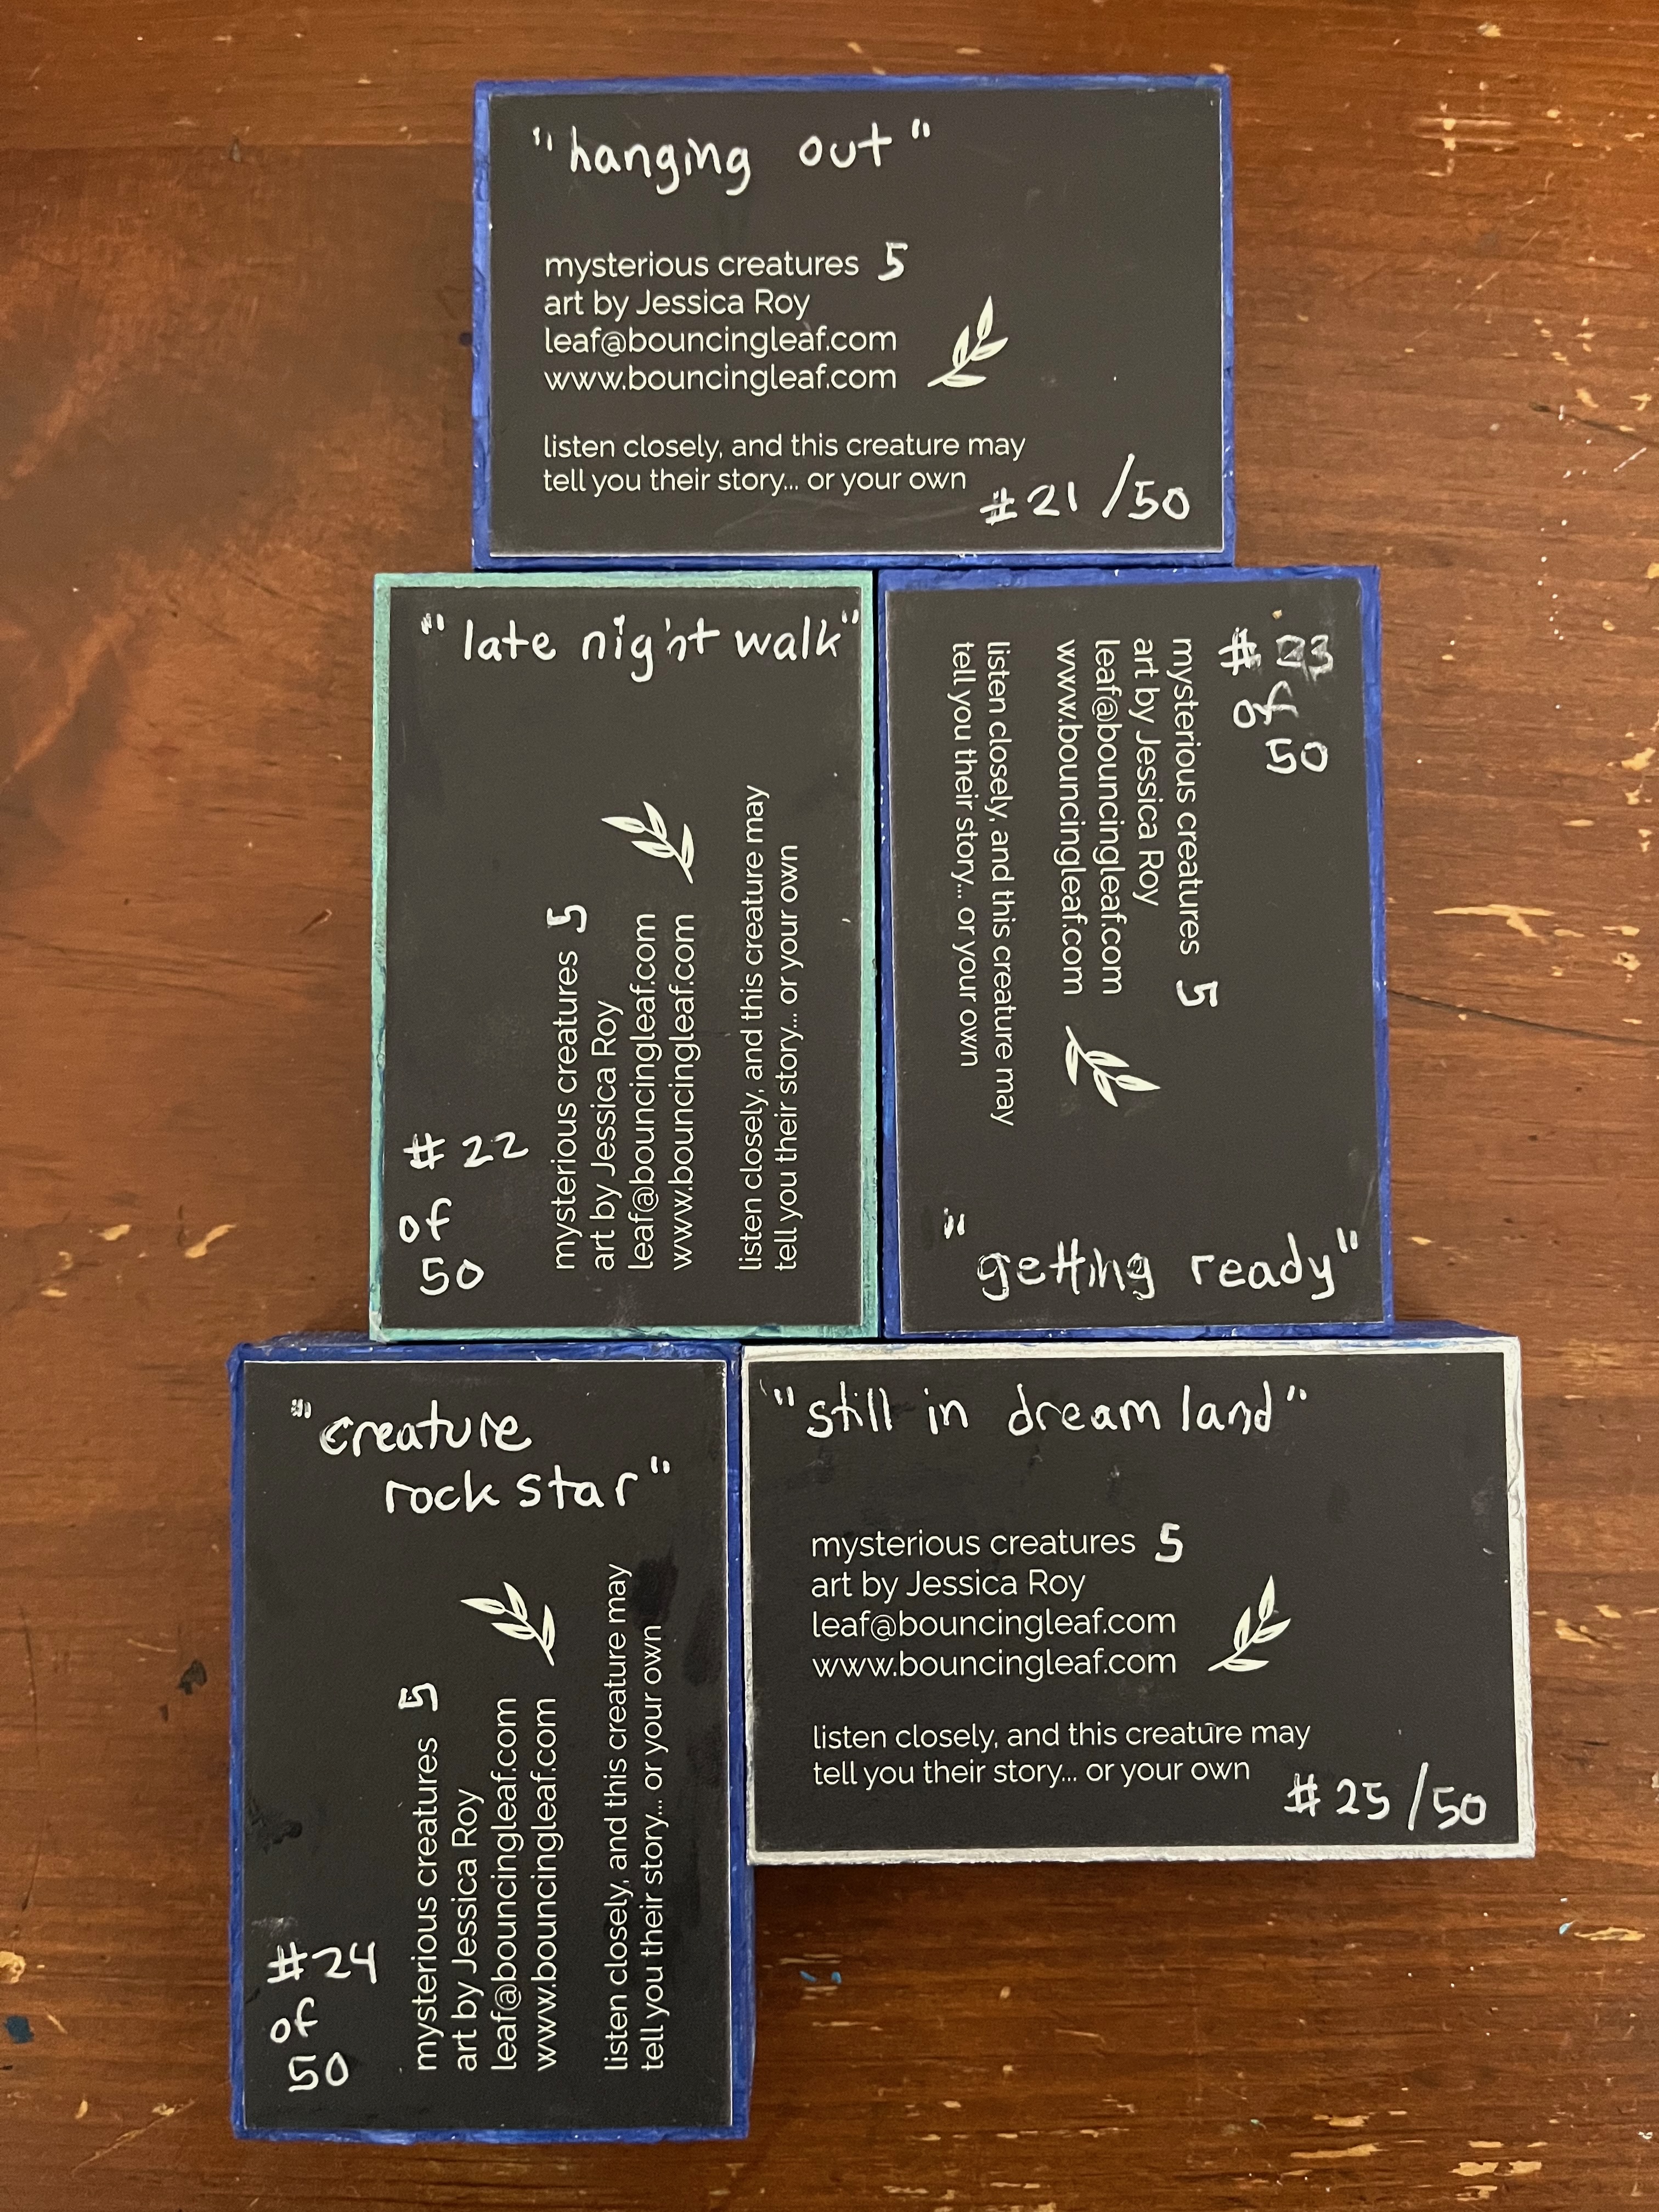 "hanging out"
mysterious creatures 5
art by Jessica Roy
leaf@bouncingleaf.com
www.bouncingleaf.com
listen closely, and this creature may
tell you their story... or your own
#21/50
"late night walk"
mysterious creatures 5
art by Jessica Roy
leaf@bouncingleaf.com
www.bouncingleaf.com
listen closely, and this creature may
tell you their story... or your own
#22
of
50
#23
of
50
mysterious creatures 5
art by Jessica Roy
leaf@bouncingleaf.com
www.bouncingleaf.com
listen closely, and this creature may
tell you their story... or your own
"getting ready"
"creature
rock star"
mysterious creatures 5
art by Jessica Roy
leaf@bouncingleaf.com
www.bouncingleaf.com
listen closely, and this creature may
tell you their story... or your own
#24
of
50
"still in dream land"
mysterious creatures 5
art by Jessica Roy
leaf@bouncingleaf.com
www.bouncingleaf.com
listen closely, and this creature may
tell you their story... or your own
#25/50